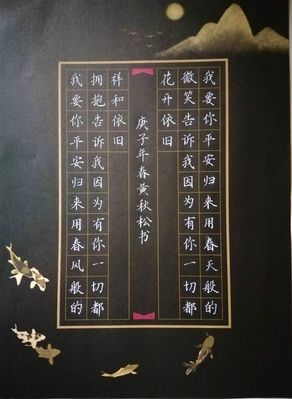 我要你平安归来用春天般的
微笑告诉我因为有你一切都
花开依旧
我要你平安归来用春风般的
拥抱告诉我因为有你一切都
祥和依旧
庚子年春黄秋松书